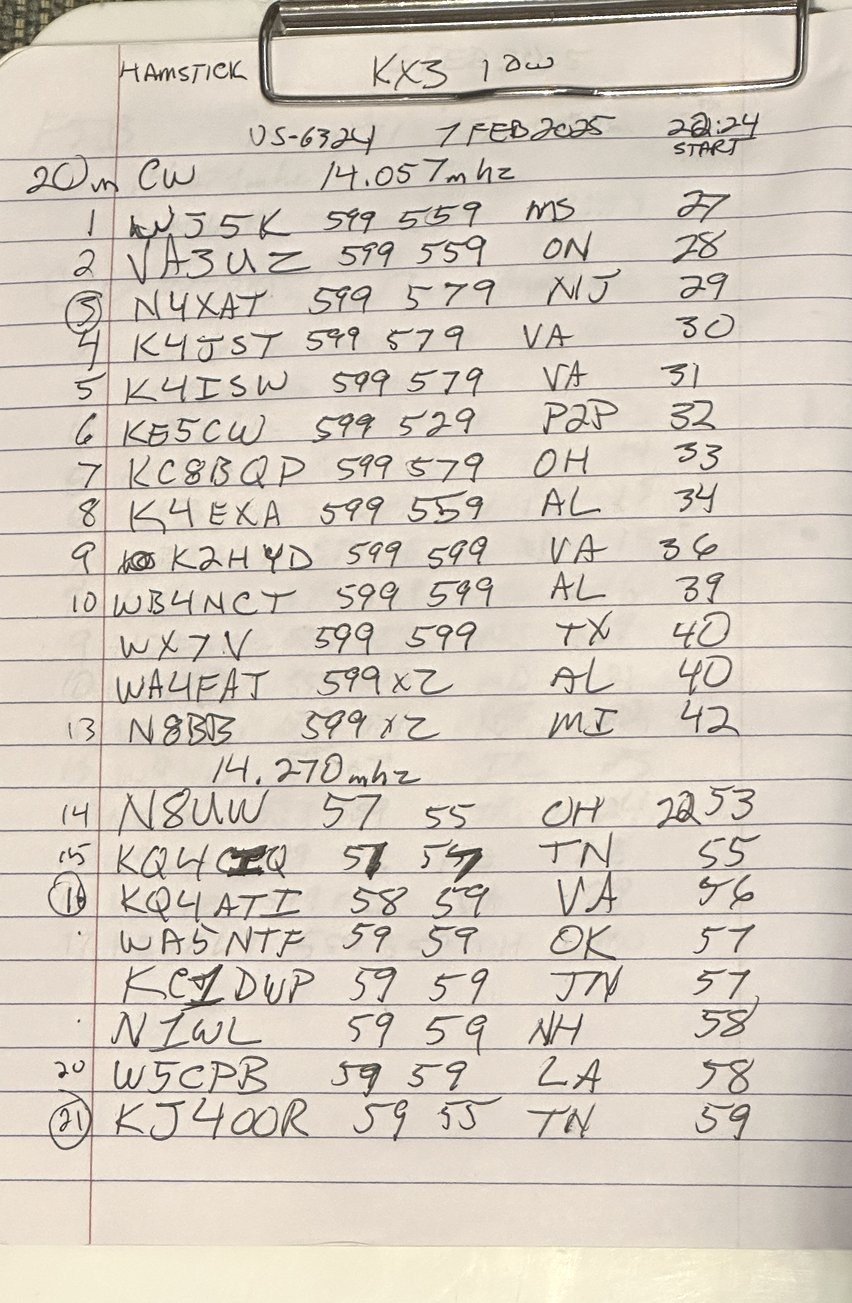 HAMSTICK KX3 10W
US-6324 7 FEB 2025 22:24
START
20m CW 14.057mhz
1 WJ5K 599 559 MS 27
2 VA3UZ 599 559 ON 28
3 N4XAT 599 579 NJ 29
4 K4JST 599 579 VA 30
5 K4ISW 599 579 VA 31
6 KE5CW 599 529 P2P 32
7 KC8BQP 599 579 OH 33
8 K4EXA 599 559 AL 34
9 K2HYD 599 599 VA 36
10 WB4NCT 599 599 AL 39
WX7V 599 599 TX 40
WA4FAT 599x2 AL 40
13 N8BB 599x2 MI 42
14.270mhz
14 N8UW 57 55 OH 2253
15 TN 55
16 KQ4ATI 58 59 VA 56
WA5NTF 59 59 OK 57
KC1DWP 59 59 57
N1WL 59 59 NH 58
20 W5CPB 59 59 LA 58
21 KJ4OOR 59 55 TN 59